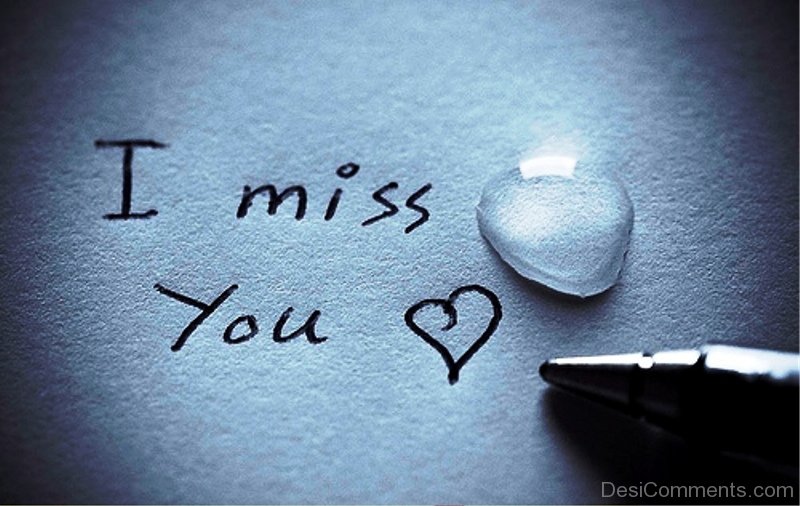 I miss
You
DesiComments.com